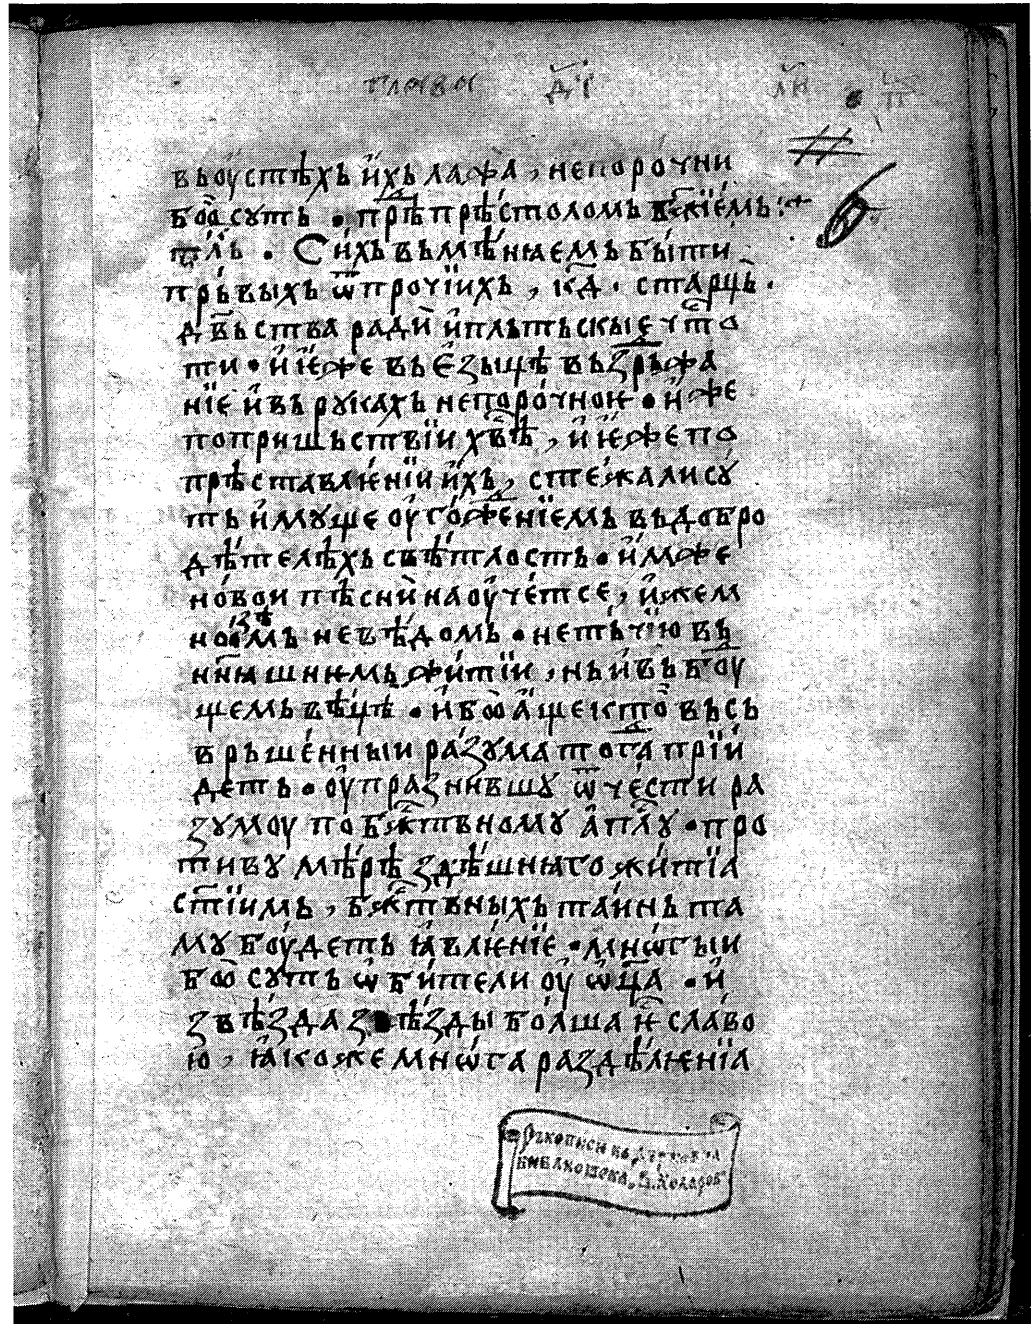 глава д҃і
въоустѣхъ ихь лъжа, непорочни
боо сꙋть · прѣⷣ прѣстоломь бж҃їемь :+
тлъ · Сихъ въмѣнꙗемь быти
прьвыхь ѿ прочїихь, кд҃ · старць ·
дв҃ьства ради и пльтьскые чⷭ҇то
ти · и ѥже въ ѥзыцѣ въздрьжа
нїе и въ рꙋкахь непорочноѥ · и же
по пришьствїи хв҃ѣ, и ѥже по
прѣставлѥнїи ихь, стежали сꙋ
ть имꙋще оугожⷣенїемь въ добро
дѣтелѣхь свѣтлость · имже
новои пѣсни на оучет се, иже м
ноѕѣмь невѣдомь · не тьчїю въ
нн҃ꙗшнимь житїи, нь и въ бⷣоу
щемь вѣцѣ · ибоо аще кто̀ въ съ
врьшенныи разꙋма тогⷣа прїи
деть · оупразнившꙋ ѿ чести ра
зꙋмоу по бж҃твномꙋ ап҃лꙋ · про
тивꙋ мѣрѣ здѣшнꙗго житїа
ст҃їимь, бж҃твных таинь та
мꙋ боудеть ꙗвлѥнїе · мнѡгыи
боо сꙋть ѡбители оу ѡц҃а · и
звѣзда звѣзды болша ѥⷭ҇ славо
ю, ꙗкоже мнѡга раздѣлѥнїа
Ръкописи на Държавна
библиотека „В. Коларов"